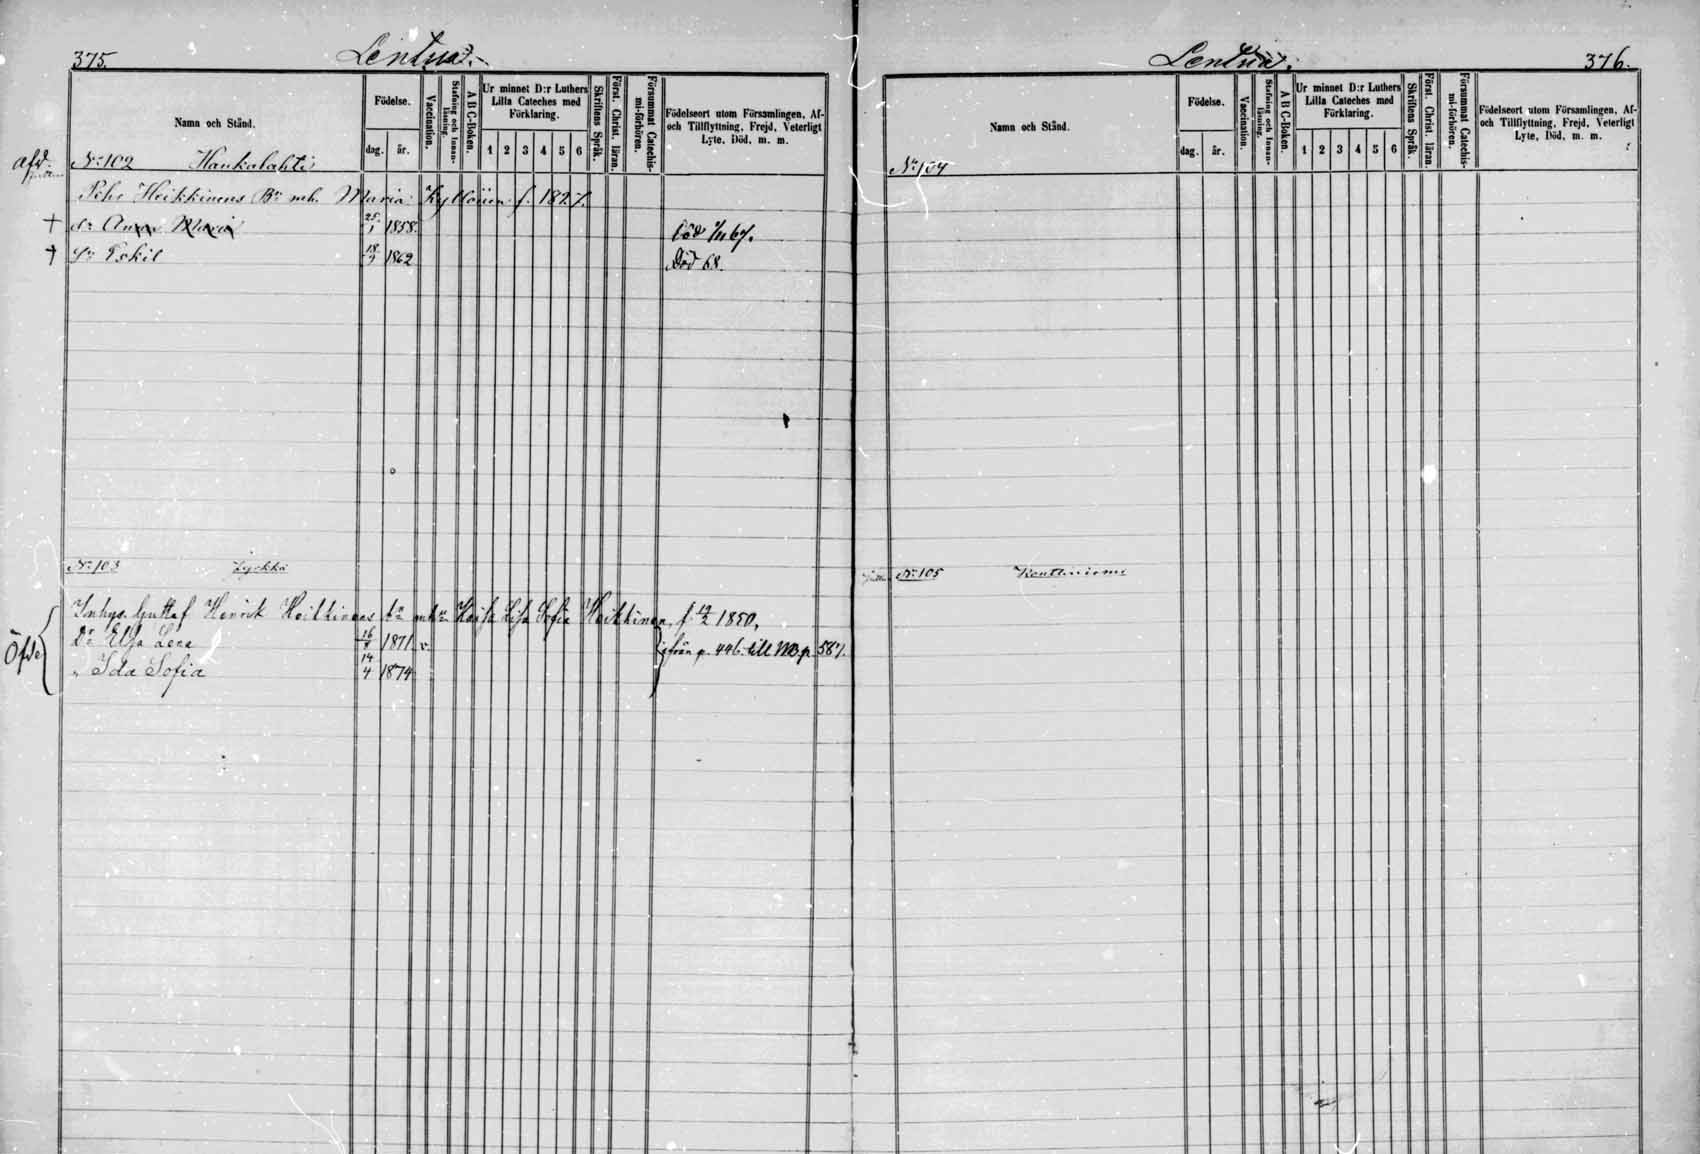 375.
Lentua.
Namn och Stånd.
Födelse.
dag.
år.
Vaccination.
Stafning och Innanläsning.
A B C-Boken.
Ur minnet D:r Luthers Lilla Cateches med Förklaring.
1 2 3 4 5 6
Skriftens Språk.
Först. Christ. läran.
Försummat Catechismi-förhören.
Födelseort utom Församlingen, Af- och Tillflyttning, Frejd, Veterligt Lyte, Död, m. m.
afd.
No 102 Haukalahti
Pehr Heikkinens Bn mh. Maria Kyllönen f. 1827.
† dr Anna Maria 25/1 1858. död /11 67.
† Sn Eskil 18/9 1862 Död 68.
No 103 Lyckkä
Inhys. Gustaf Henrik Heikkinens Bn mh Kaisa Lisa Sofia Heikkinen, f 12/2 1850,
Öfde
Dr Elsa Lena 16/8 1871 v. från p. 446 till MB p. 587.
„ Ida Sofia 14/4 1874
Lentua.
376.
Namn och Stånd.
Födelse.
dag.
år.
Vaccination.
Stafning och Innanläsning.
A B C-Boken.
Ur minnet D:r Luthers Lilla Cateches med Förklaring.
1 2 3 4 5 6
Skriftens Språk.
Först. Christ. läran.
Försummat Catechismi-förhören.
Födelseort utom Församlingen, Af- och Tillflyttning, Frejd, Veterligt Lyte, Död, m. m.
No 104
No 105 Kontiniemi